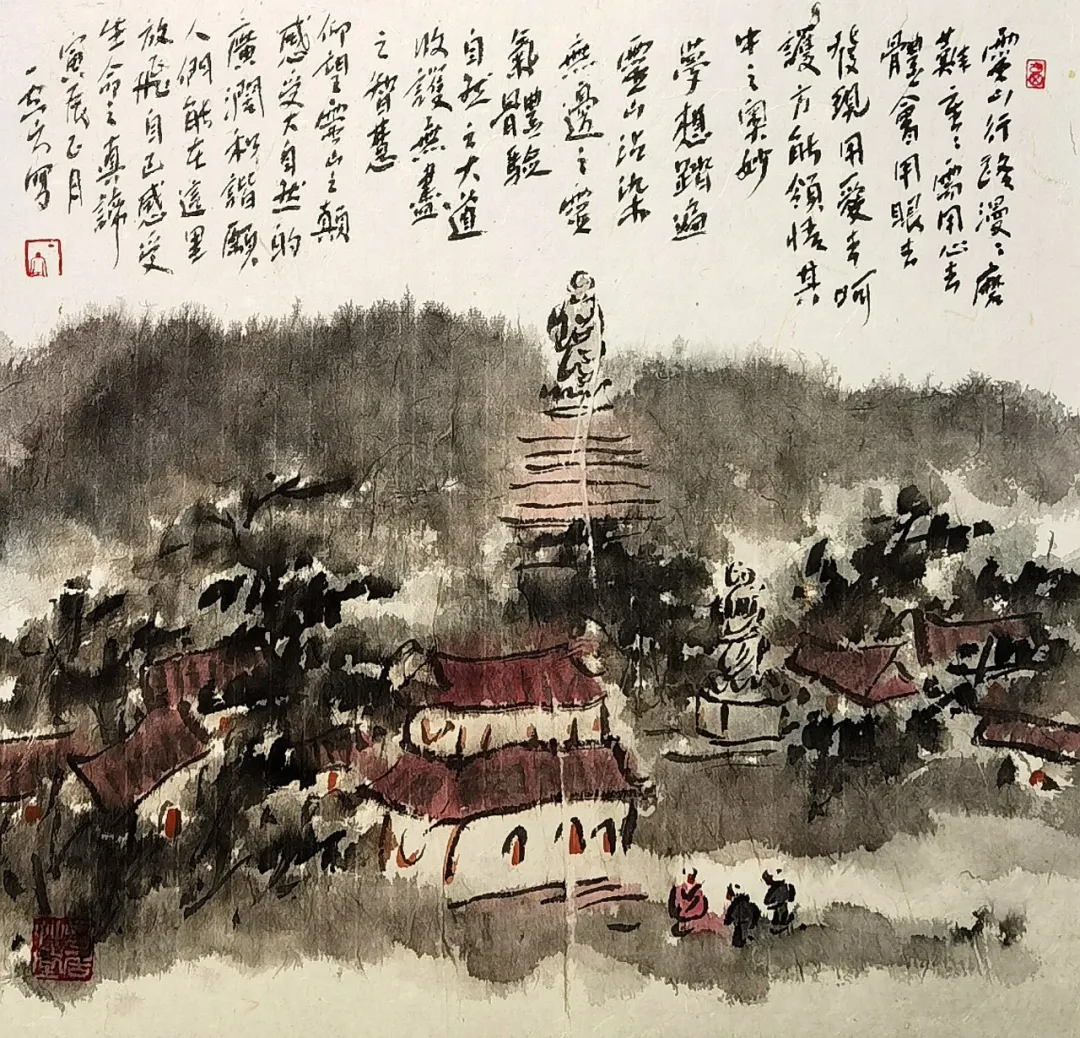 靈山行路漫漫磨
難重重需用心去
體會用眼去
發現用愛去呵
護方能領悟其
中之奧妙
夢想踏遍
靈山沾染
無邊之靈
氣體驗
自然之大道
收護無盡
之智慧
仰望靈山之顛
感受大自然的
廣濶和諧願
人們能在這里
放飛自己感受
生命之真諦
寅辰正月